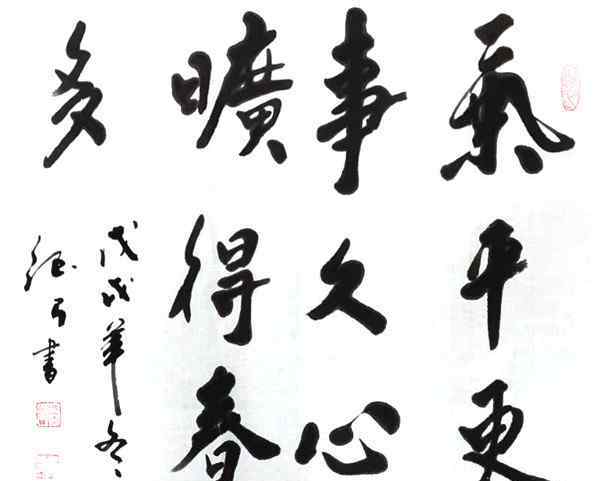 氣平更
事久心
曠得春
多
戊戌年冬
書